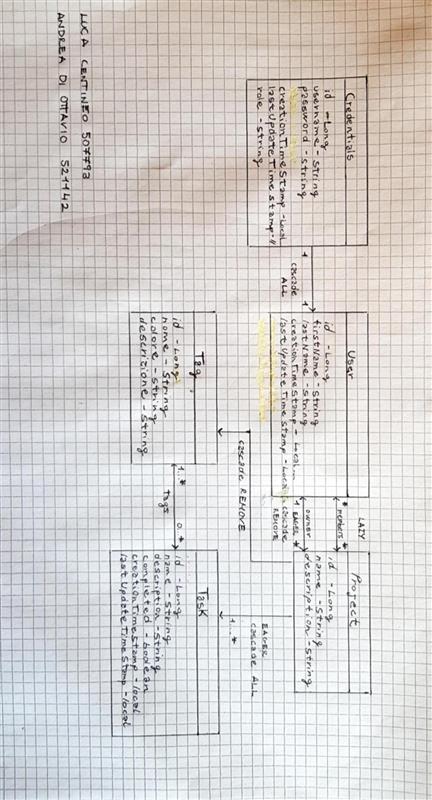 Credentials
id - Long
username - String
password - String
creationTimeStamp - Local
lastUpdateTimeStamp - "
role - String
1 1
cascade
ALL
User
id - Long
firstName - String
lastName - String
creationTimeStamp - Local...
lastUpdateTimeStamp - Local
LAZY
* *
members
owner
1 EAGER *
cascade
REMOVE
Project
id - Long
name - String
description - String
cascade REMOVE
EAGER
cascade ALL
1...*
Tag
id - Long
nome - String
colore - String
descrizione - String
1...* 0...*
Tags
Task
id - Long
name - String
description - String
completed - boolean
creationTimeStamp - local
lastUpdateTimeStamp - local
LUCA CENTINEO 507793
ANDREA DI OTTAVIO 521142